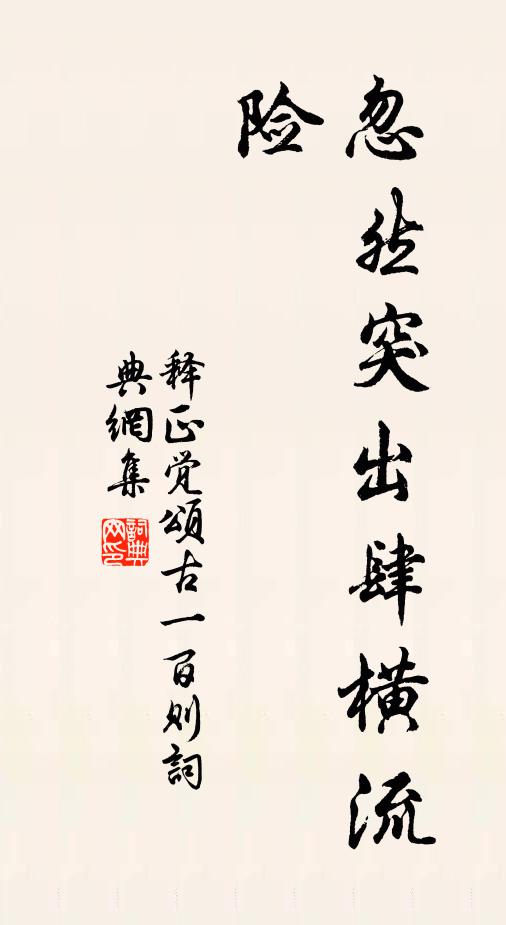 忽然突出肆横流
险
释正觉頌古一百则詞
典網集
詞典
网印